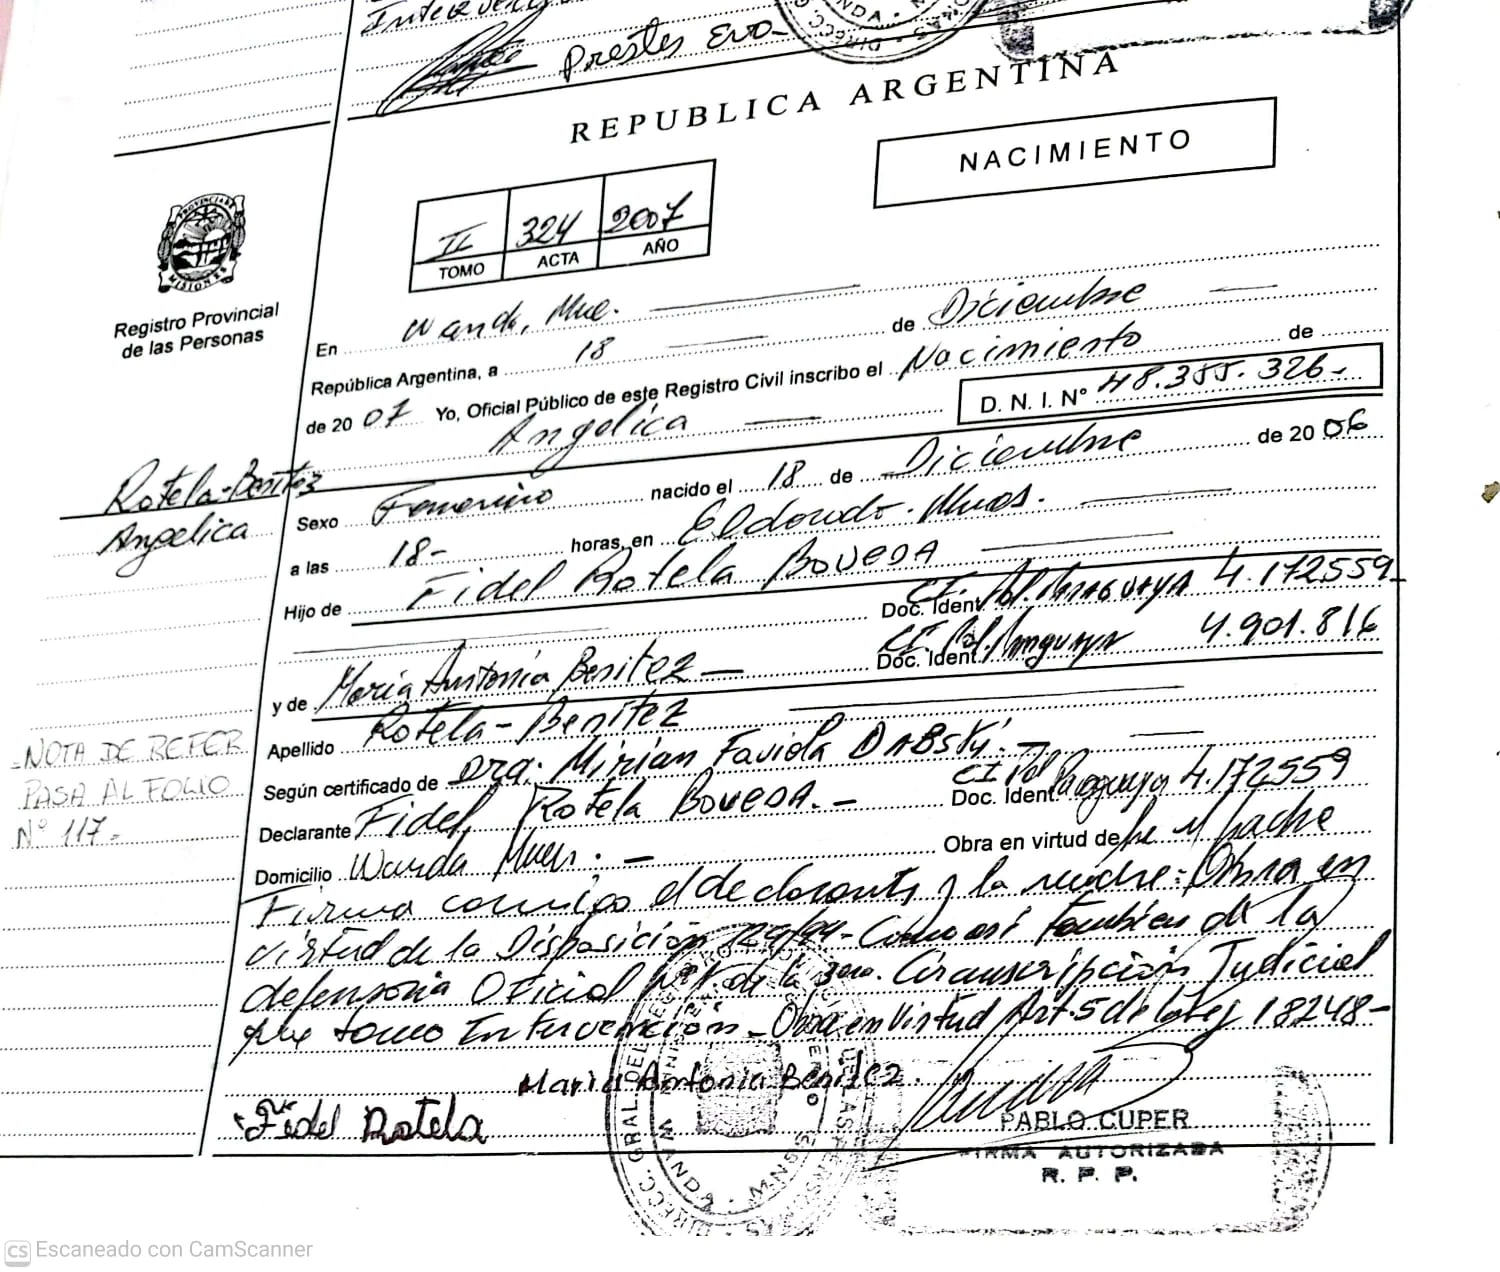 Prestes Evo-
REPUBLICA ARGENTINA
NACIMIENTO
II 324 2007
TOMO ACTA AÑO
PROVINCIA DE
MISIONES
Registro Provincial
de las Personas
En Wanda, Mnes.
República Argentina, a 18 de Diciembre
de 20 07 Yo, Oficial Público de este Registro Civil inscribo el Nacimiento de
Angélica D. N. I. Nº 48.355.326-
Rotela-Benitez
Angelica
Sexo Femenino nacido el 18 de Diciembre de 20 06
a las 18- horas, en Eldorado. Mnes.
Hijo de Fidel Rotela Boveda
Doc. Ident CI. Pol. Paraguaya 4.172559
y de Maria Antonia Benitez - Doc. Ident. CI Pol. Paraguaya 4.901.816
Apellido Rotela - Benitez
Según certificado de Dra. Mirian Faviola Dabsky. -
Declarante Fidel Rotela Boveda. - Doc. Ident. CI Pol Paraguaya 4.172559
Domicilio Wanda Mnes. - Obra en virtud de
-NOTA DE REFER
PASA AL FOLIO
Nº 117-
Firma conmigo el declarante y la madre: Obra en
virtud de la Disposición 129/94- Como así también de la
defensoria Oficial Nº1 de la 3era. Circunscripción Judicial
que tomo Intervención - Obra en virtud Art. 5 de la Ley 18248-
Maria Antonia Benitez.
Fidel Rotela
PABLO CUPER
FIRMA AUTORIZADA
R. P. P.
CS Escaneado con CamScanner